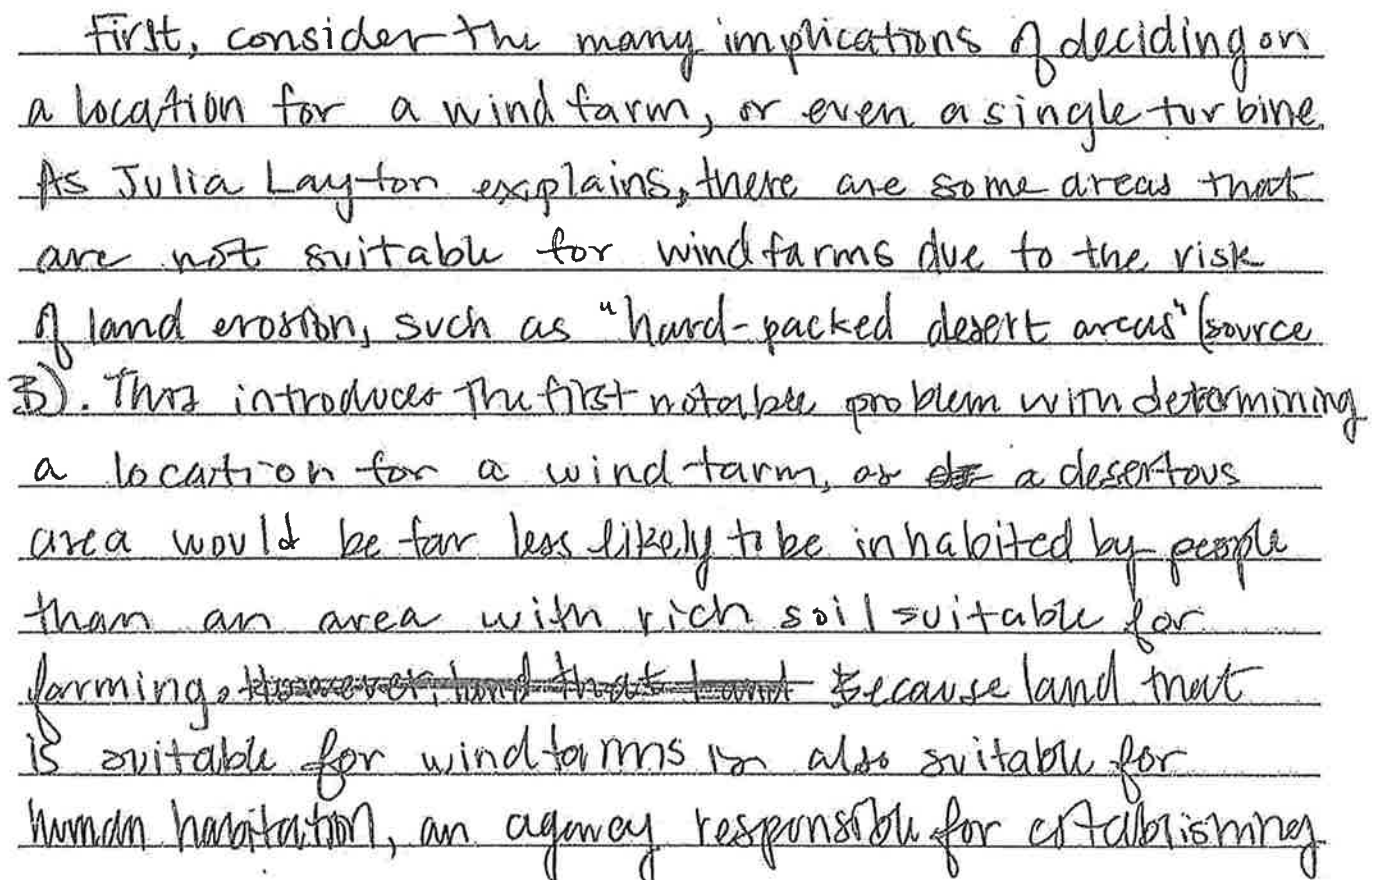 First, consider the many implications of deciding on
a location for a wind farm, or even a single turbine.
As Julia Layton explains, there are some areas that
are not suitable for wind farms due to the risk
of land erosion, such as "hard-packed desert areas" (source
B). This introduces the first notable problem with determining
a location for a wind farm, as a desertous
area would be far less likely to be inhabited by people
than an area with rich soil suitable for
farming. However, land that land Because land that
is suitable for wind farms is also suitable for
human habitation, an agency responsible for establishing